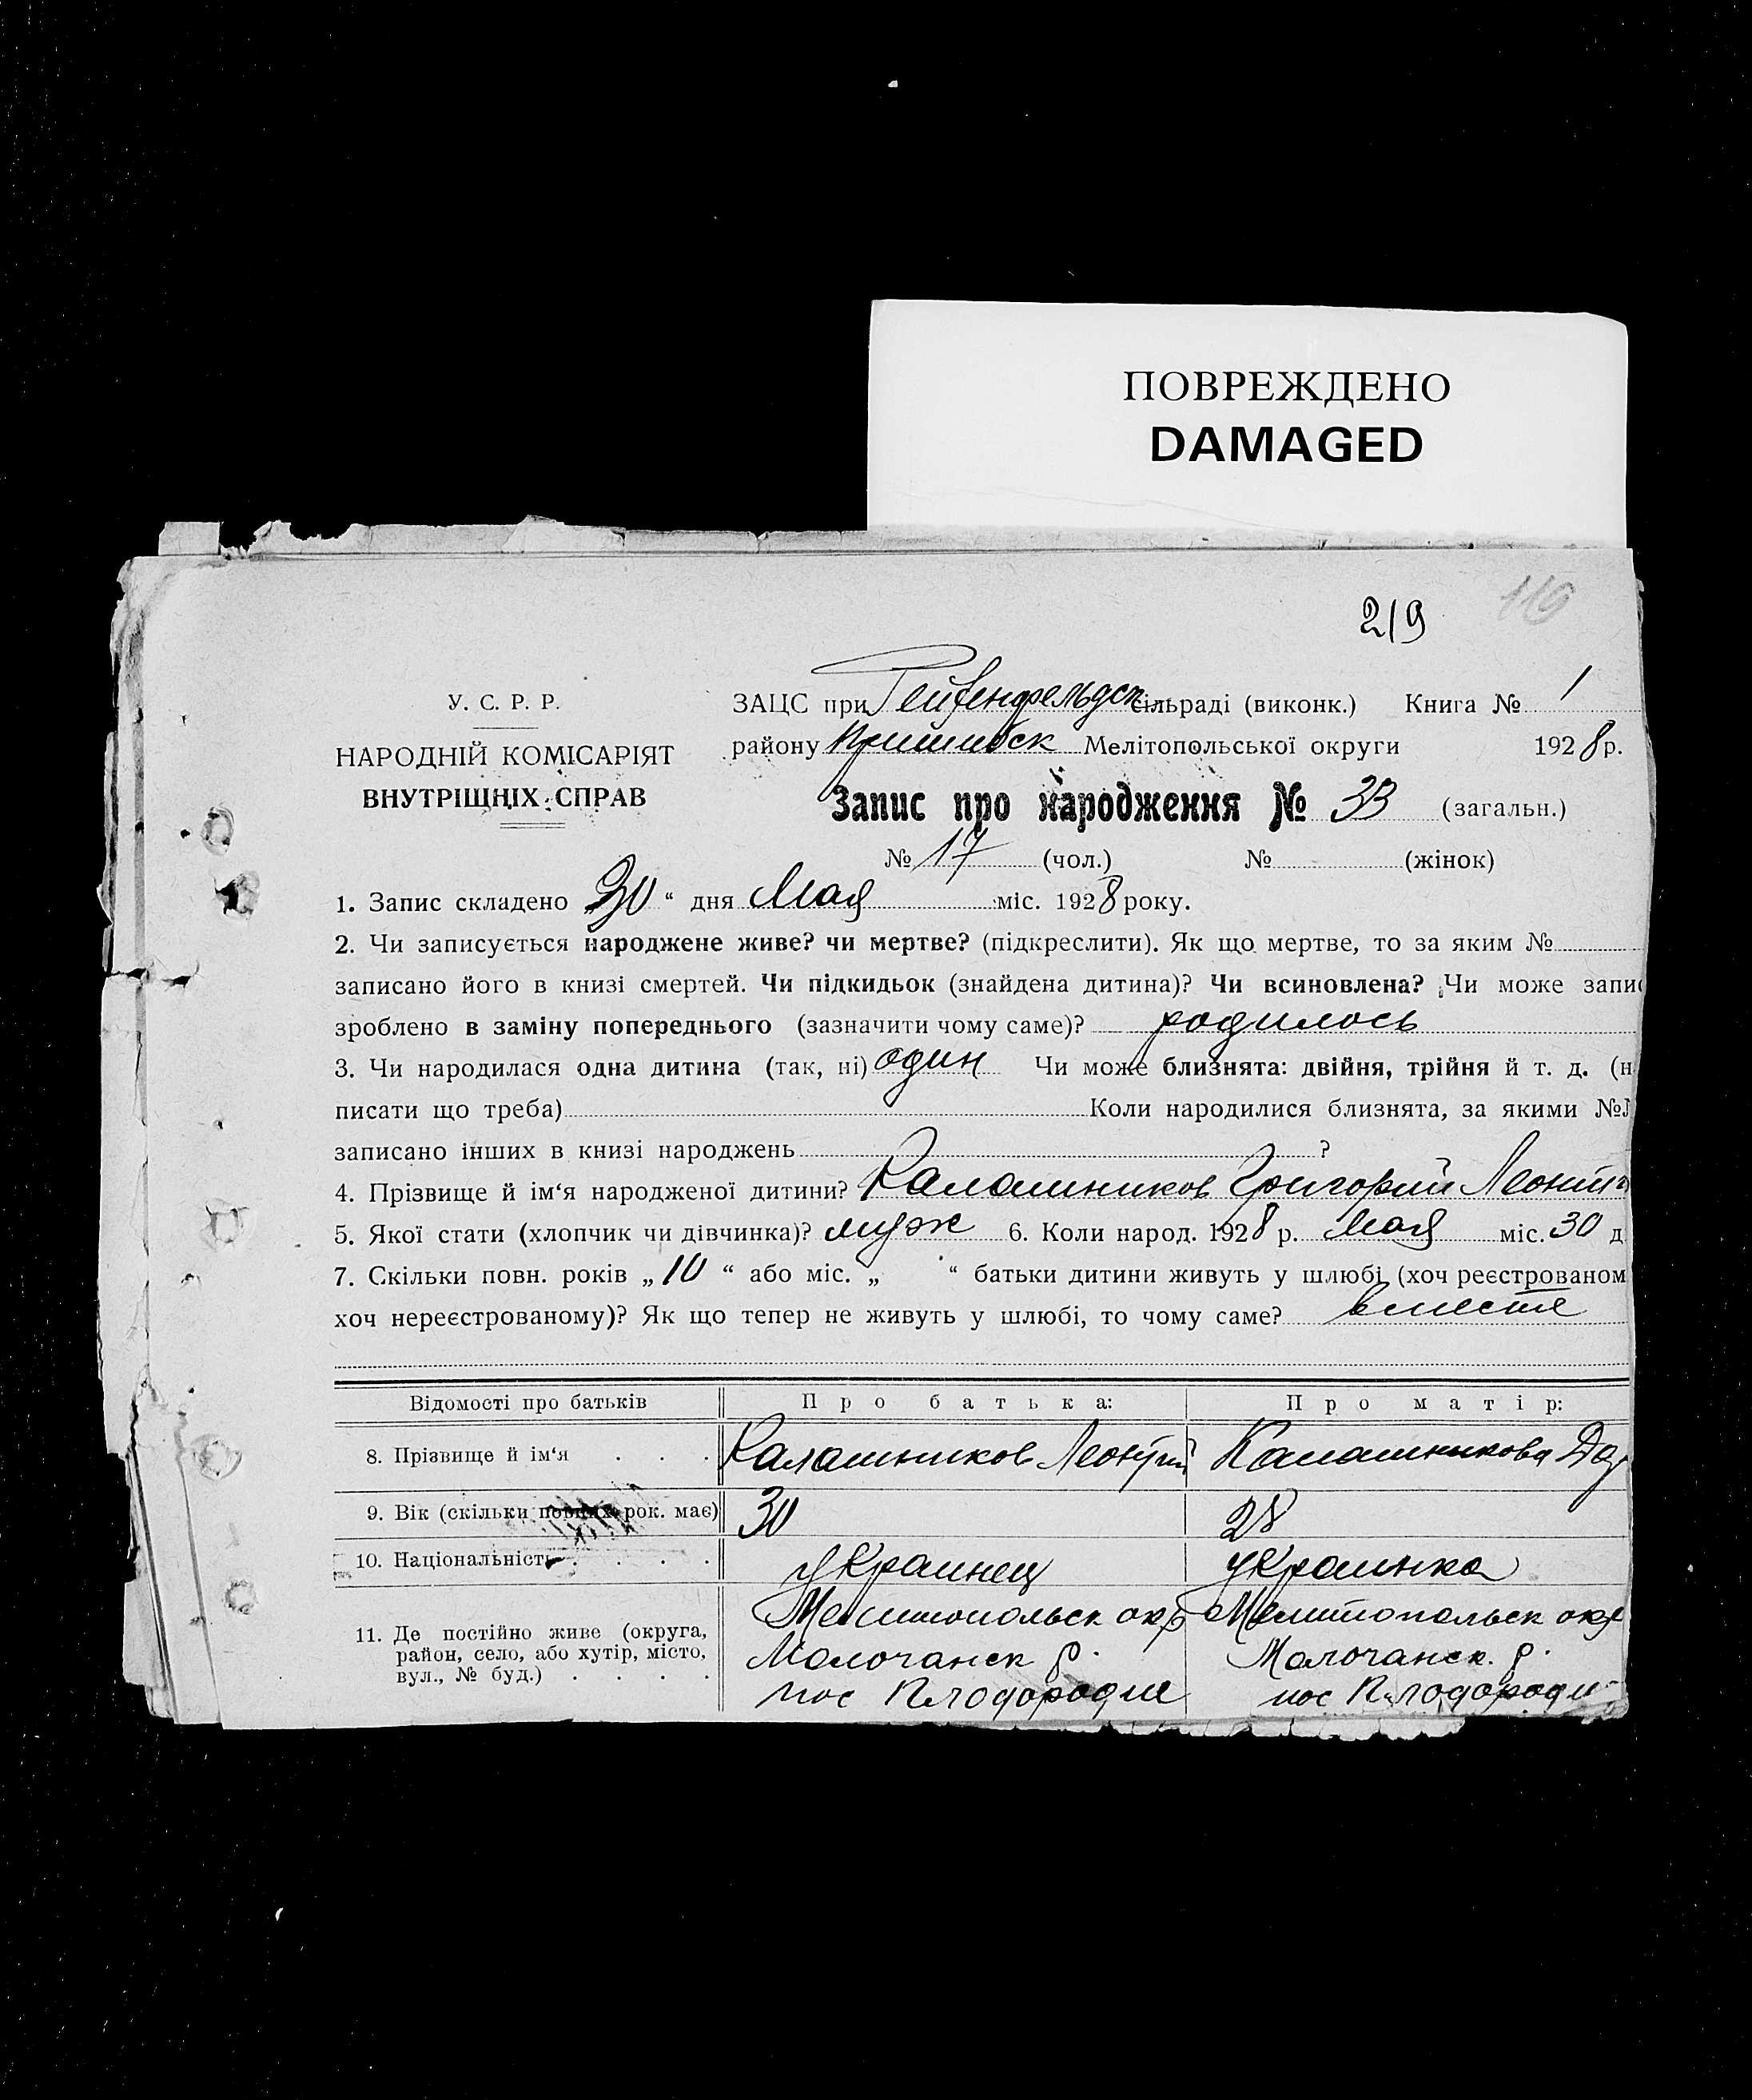 ПОВРЕЖДЕНО
DAMAGED
219
116
У. С. Р. Р.
НАРОДНІЙ КОМІСАРІЯТ
ВНУТРІШНІХ СПРАВ
ЗАЦС при Гейденфельдск сільраді (виконк.) Книга № 1
району Пришибск Мелітопольської округи 1928 р.
Запис про народження № 33 (загальн.)
№ 17 (чол.) № (жінок)
1. Запис складено „30“ дня Мая міс. 1928 року.
2. Чи записується народжене живе? чи мертве? (підкреслити). Як що мертве, то за яким №
записано його в книзі смертей. Чи підкидьок (знайдена дитина)? Чи всиновлена? Чи може запи
зроблено в заміну попереднього (зазначити чому саме)? родилось
3. Чи народилася одна дитина (так, ні) один Чи може близнята: двійня, трійня й т. д. (н
писати що треба) Коли народилися близнята, за якими №
записано інших в книзі народжень ?
4. Прізвище й ім‘я народженої дитини? Калашников Григорий Леонти
5. Якої стати (хлопчик чи дівчинка)? муж 6. Коли народ. 1928 р. Мая міс. 30 д
7. Скільки повн. років „10“ або міс. „ “ батьки дитини живуть у шлюбі (хоч реєстрованом
хоч нереєстрованому)? Як що тепер не живуть у шлюбі, то чому саме? вместе
Відомості про батьків Про батька: Про матір:
8. Прізвище й ім‘я . . . Калашников Леонтий Калашникова Дар
9. Вік (скільки повних рок. має) 30 28
10. Національність . . . . украинец украинка
11. Де постійно живе (округа, район, село, або хутір, місто, вул., № буд.) . . . .
Мелитопольск окр Мелитопольск окр
Молочанск р. Молочанск. р.
пос Плодородие пос Плодороди